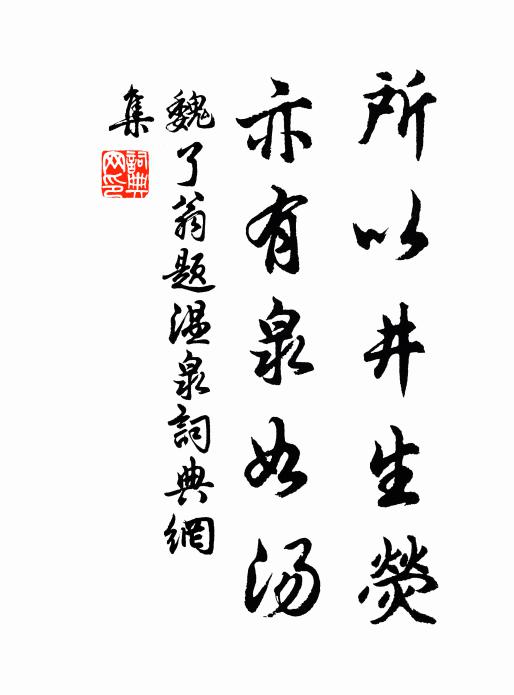 所以井生熒
亦有泉如汤
魏了翁题温泉詞典網
集
詞典
网印